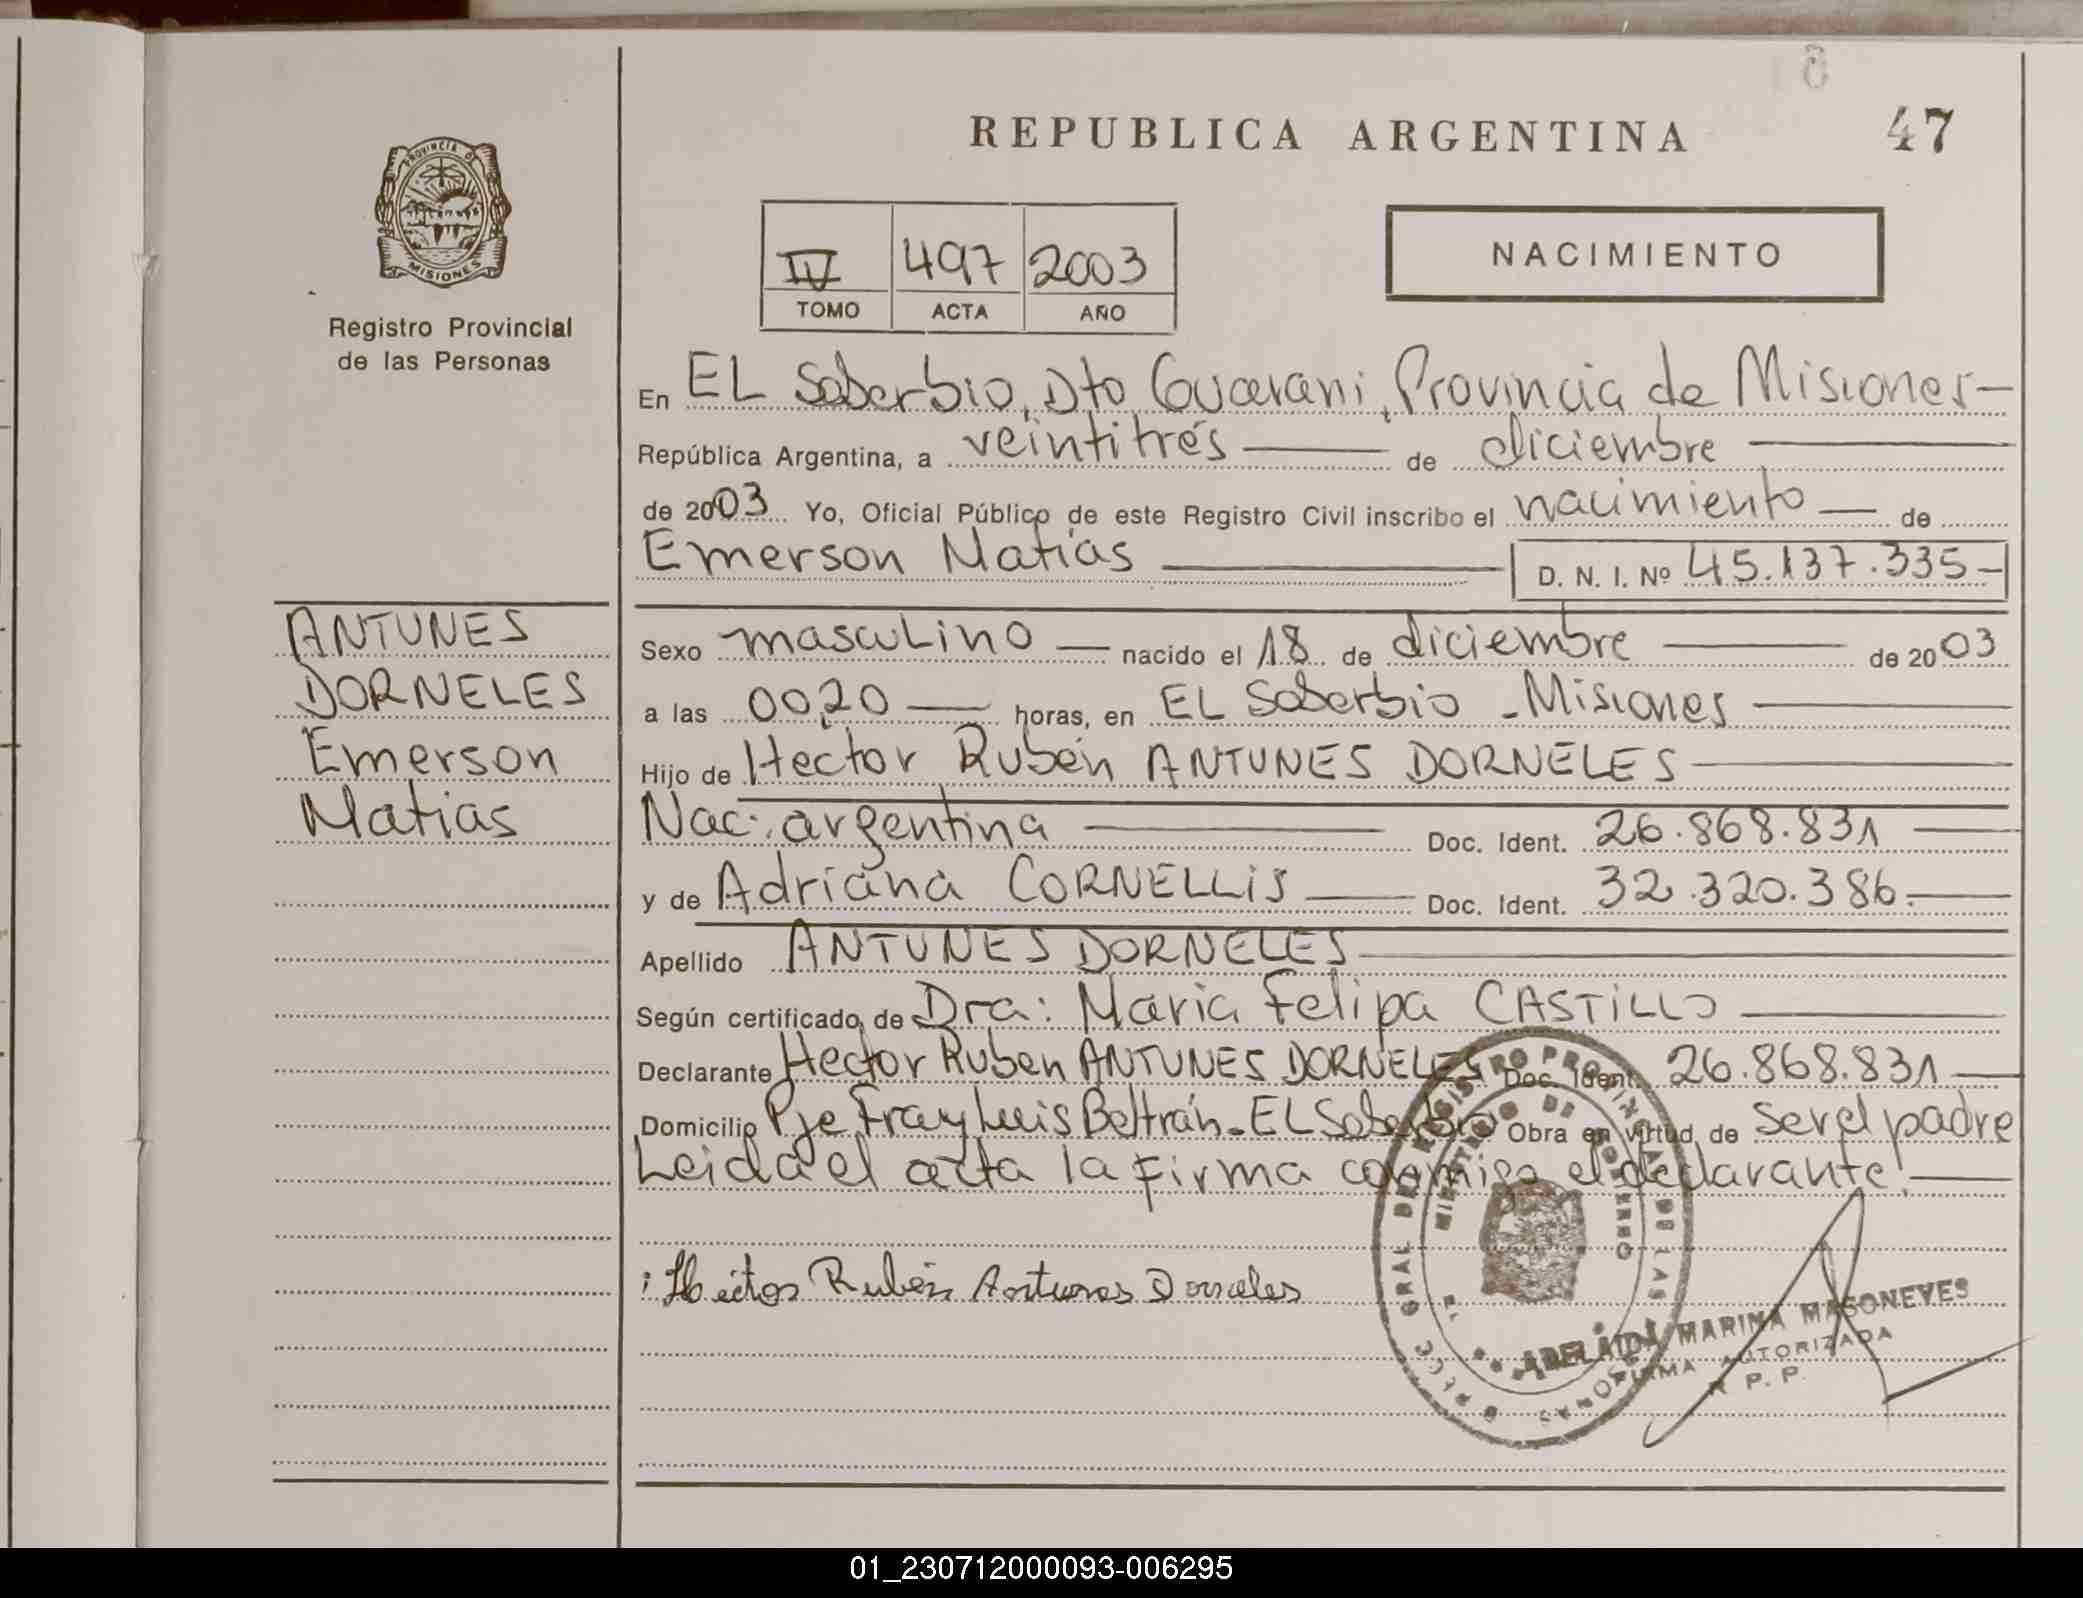 REPUBLICA ARGENTINA
47
PROVINCIA DE
MISIONES
Registro Provincial
de las Personas
IV 497 2003
TOMO ACTA AÑO
NACIMIENTO
En EL Soberbio, Dto Guarani, Provincia de Misiones
República Argentina, a veintitrés de diciembre
de 2003 Yo, Oficial Público de este Registro Civil inscribo el nacimiento de
Emerson Matías D. N. I. Nº 45.137.335
ANTUNES
DORNELES
Emerson
Matias
Sexo mascuLino nacido el 18 de diciembre de 2003
a las 00,20 horas, en EL Soberbio - Misiones
Hijo de Hector Rubén ANTUNES DORNELES
Nac: argentina Doc. Ident. 26.868.831
y de Adriana CORNELLIS Doc. Ident. 32.320.386
Apellido ANTUNES DORNELES
Según certificado de Dra: Maria Felipa CASTILLO
Declarante Hector Ruben ANTUNES DORNELES Doc. Ident. 26.868.831
Domicilio Pje Fray Luis Beltrán - EL Soberbio Obra en virtud de ser el padre
Leida el acta la firma conmigo el declarante.
Hector Rubén Antunes Dorneles
ADELAIDA MARINA MASONEVES
FIRMA AUTORIZADA
R. P. P.
01_230712000093-006295